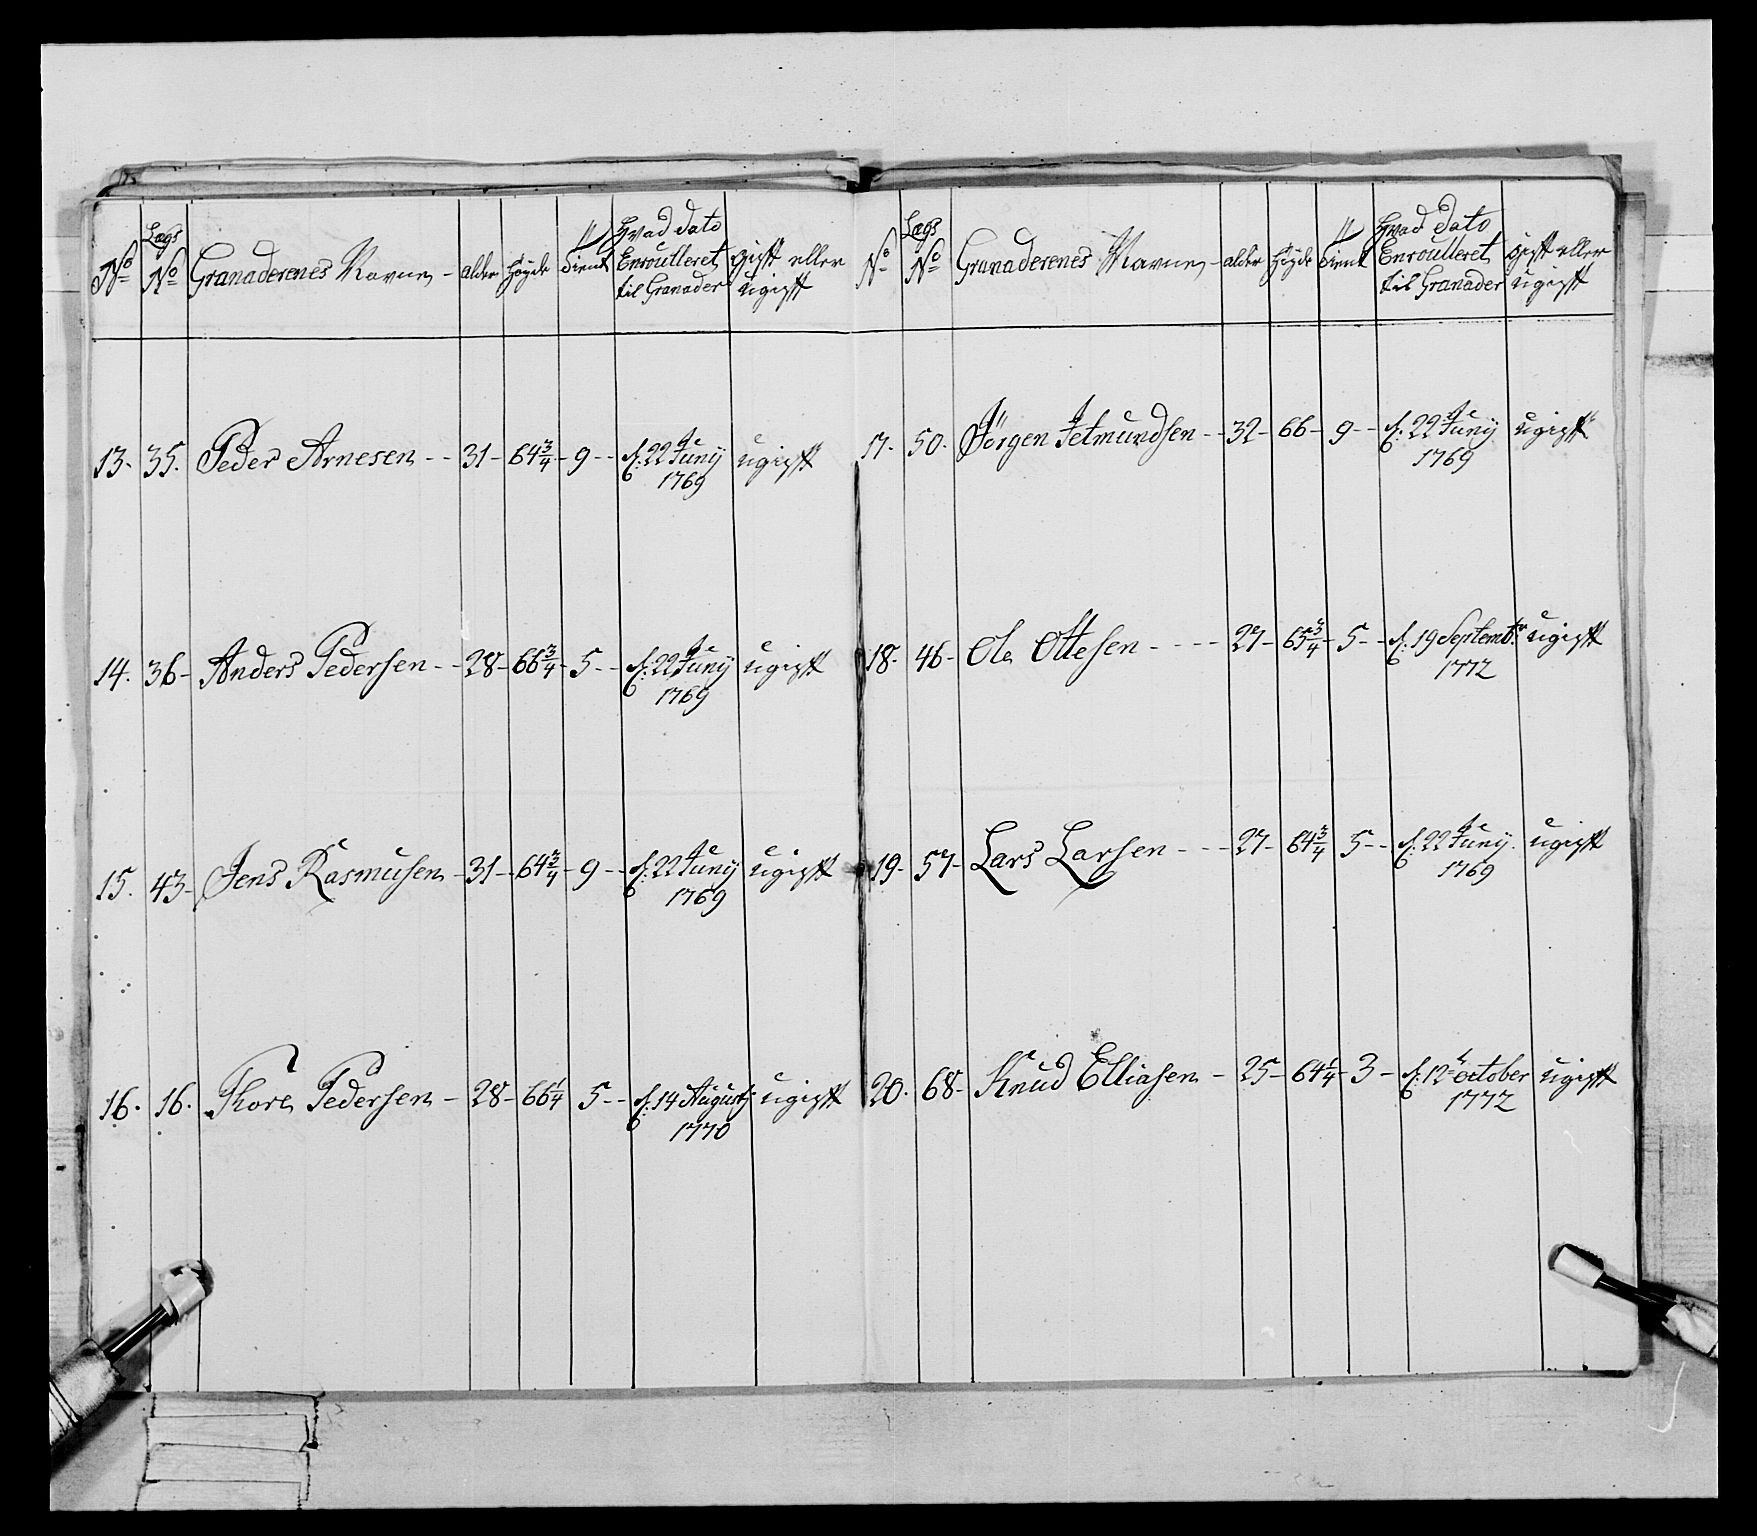 No | Lægs No | Granaderenes Navne | alder | Høyde | Tient | Hvad dato Enroulleret til Granader | gift eller ugift
13. | 35. | Peder Arnesen | 31 | 64 3/4 | 9 | d: 22de Juny 1769 | ugift
14. | 36 | Anders Pedersen | 28 | 66 3/4 | 5 | d: 22de Juny 1769 | ugift
15. | 43 | Jens Rasmusen | 31 | 64 3/4 | 9 | d: 22de Juny 1769 | ugift
16. | 16. | Thore Pedersen | 28 | 66 1/4 | 5 | d: 14 August: 1770 | ugift
No | Lægs No | Granaderenes Navne | alder | Høyde | Tient | Hvad dato Enroulleret til Granader | gift eller ugift
17. | 50. | Jörgen Jetmundsen | 32 | 66 | 9 | d: 22de Juny 1769 | ugift
18. | 46 | Ole Ottesen | 27 | 65 3/4 | 5 | d: 19 Septembr: 1772 | ugift
19. | 57 | Lars Larsen | 27 | 64 3/4 | 5 | d: 22de Juny 1769 | ugift
20. | 68 | Knud Elliasen | 25 | 64 1/4 | 3 | d: 12te October 1772 | ugift